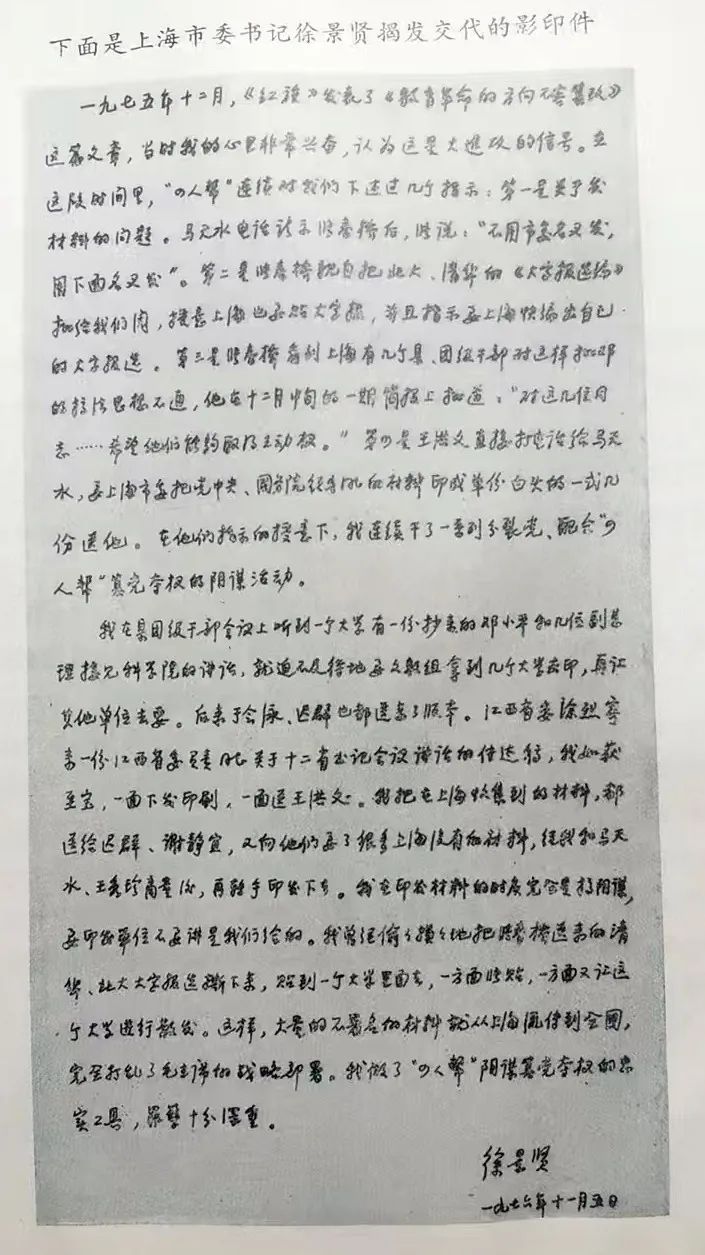 下面是上海市委书记徐景贤揭发交代的影印件
一九七五年十二月，《红旗》发表了《教育革命的方向不容篡改》
这篇文章，当时我的心里非常兴奋，认为这是大进攻的信号。在
这段时间里，“四人帮”连续对我们下达过几个指示：第一是关于发
材料的问题。马天水电话请示张春桥后，张说：“不用市委名义发，
用下面名义发”。第二是张春桥亲自把北大、清华的《大字报选编》
批给我们阅，授意上海也要贴大字报，并且指示要上海快编出自己
的大字报选。第三是张春桥看到上海有几个县、团级干部对这样批邓
的搞法思想不通，他在十二月中旬的一期简报上批道：“对这几位同
志……希望他们能够取得主动权。”第四是王洪文直接打电话给马天
水，要上海市委把党中央、国务院领导人的材料印成单份白头的一式几
份送他。在他们指示的授意下，我连续干了一系列分裂党、配合“四
人帮”篡党夺权的阴谋活动。
我在县团级干部会议上听到一个大学有一份抄来的邓小平和几位副总
理接见科学院的讲话，就迫不及待地要文教组拿到几个大学去印，再让
其他单位去要。后来于会泳、迟群也都送来了版本。江西省委涂烈寄
来一份江西省委关于十二省书记会议讲话的传达稿，我如获
至宝，一面下发印刷，一面送王洪文。我把在上海收集到的材料，都
送给迟群、谢静宜，又向他们要了很多上海没有的材料，经我和马天
水、王秀珍商量后，再转手印发下去。我在印发材料的时候完全是搞阴谋，
要印发单位不要讲是我们给的。我曾经偷偷摸摸地把张春桥送来的清
华、北大大字报选撕下来，贴到一个大学里面去，一方面张贴，一方面又让这
个大学进行散发。这样，大量的不署名的材料就从上海流传到全国，
完全打乱了毛主席的战略部署。我做了“四人帮”阴谋篡党夺权的忠
实工具，罪孽十分深重。
徐景贤
一九七六年十一月五日